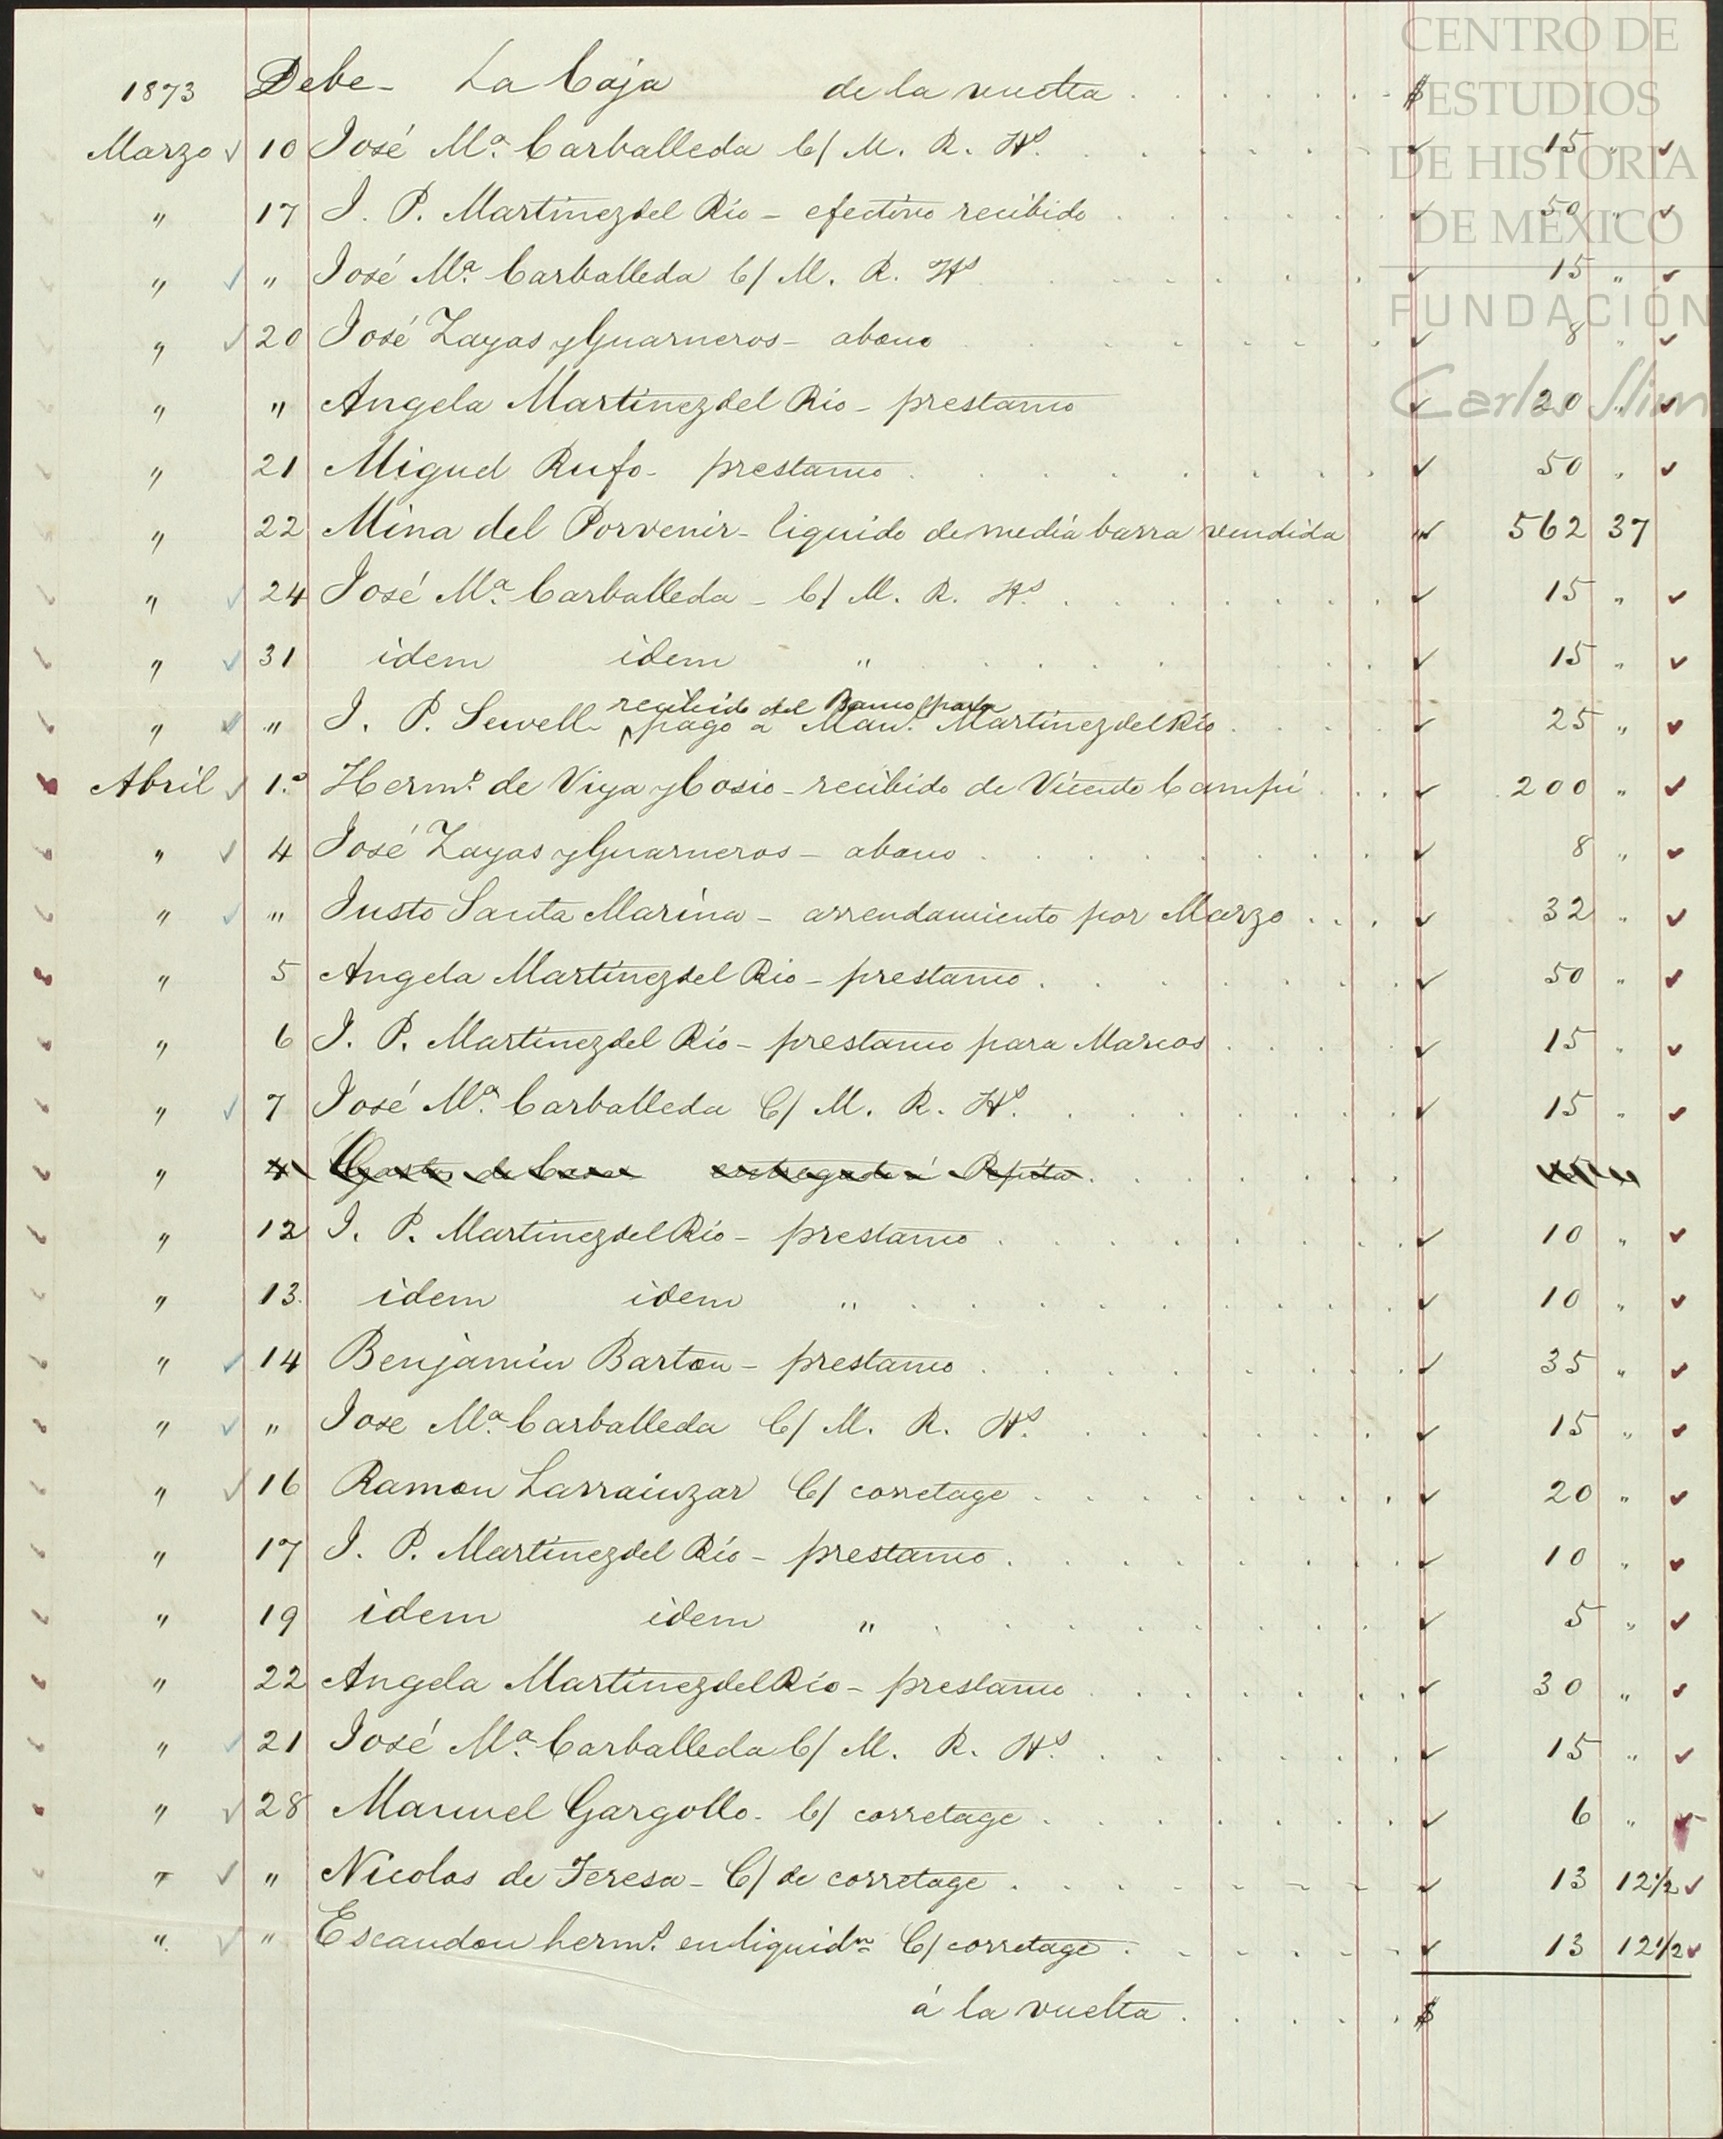 CENTRO DE
ESTUDIOS
DE HISTORIA
DE MÉXICO
FUNDACIÓN
Carlos Slim
1873 Debe - La Caja de la vuelta . . . . . . . $
Marzo 10 José Mª. Carballeda C/ M. R. Hs. 15 "
" 17 J. P. Martinez del Rio - efectivo recibido 50 "
" " José Mª. Carballeda C/ M. R. Hs 15 "
" 20 José Zayas y Guarneros - abono 8 "
" " Angela Martinez del Rio - prestamo 20 "
" 21 Miguel Rufo - prestamo 50 "
" 22 Mina del Porvenir - liquido de media barra vendida 562 37
" 24 José Mª. Carballeda - C/ M. R. Hs. 15 "
" 31 idem idem " 15 "
recibido del Banco para
" " J. P. Sewell pago a Man. Martinez del Rio 25 "
Abril 1.º Herms. de Viya y Cosio - recibido de Vicente Campi 200 "
" 4 José Zayas y Guarneros - abono 8 "
" " Justo Santa Marina - arrendamiento por Marzo 32 "
" 5 Angela Martinez del Rio - prestamo 50 "
" 6 J. P. Martinez del Rio - prestamo para Marcos 15 "
" 7 José Mª. Carballeda C/ M. R. Hs. 15 "
" Gastos de Casa entregado á Pepita
" 12 J. P. Martinez del Rio - prestamo 10 "
" 13. idem idem " 10 "
" 14 Benjamin Barton - prestamo 35 "
" " Jose Mª. Carballeda C/ M. R. Hs. 15 "
" 16 Ramon Larrainzar C/ corretage 20 "
" 17 J. P. Martinez del Rio - prestamo 10 "
" 19 idem idem " 5 "
" 22 Angela Martinez del Rio - prestamo 30 "
" 21 José Mª. Carballeda C/ M. R. Hs. 15 "
" 28 Manuel Gargollo - C/ corretage 6 "
" " Nicolas de Teresa - C/ de corretage 13 12 1/2
" " Escandon herms. en liquidn C/ corretage 13 12 1/2
á la vuelta . . . . . $